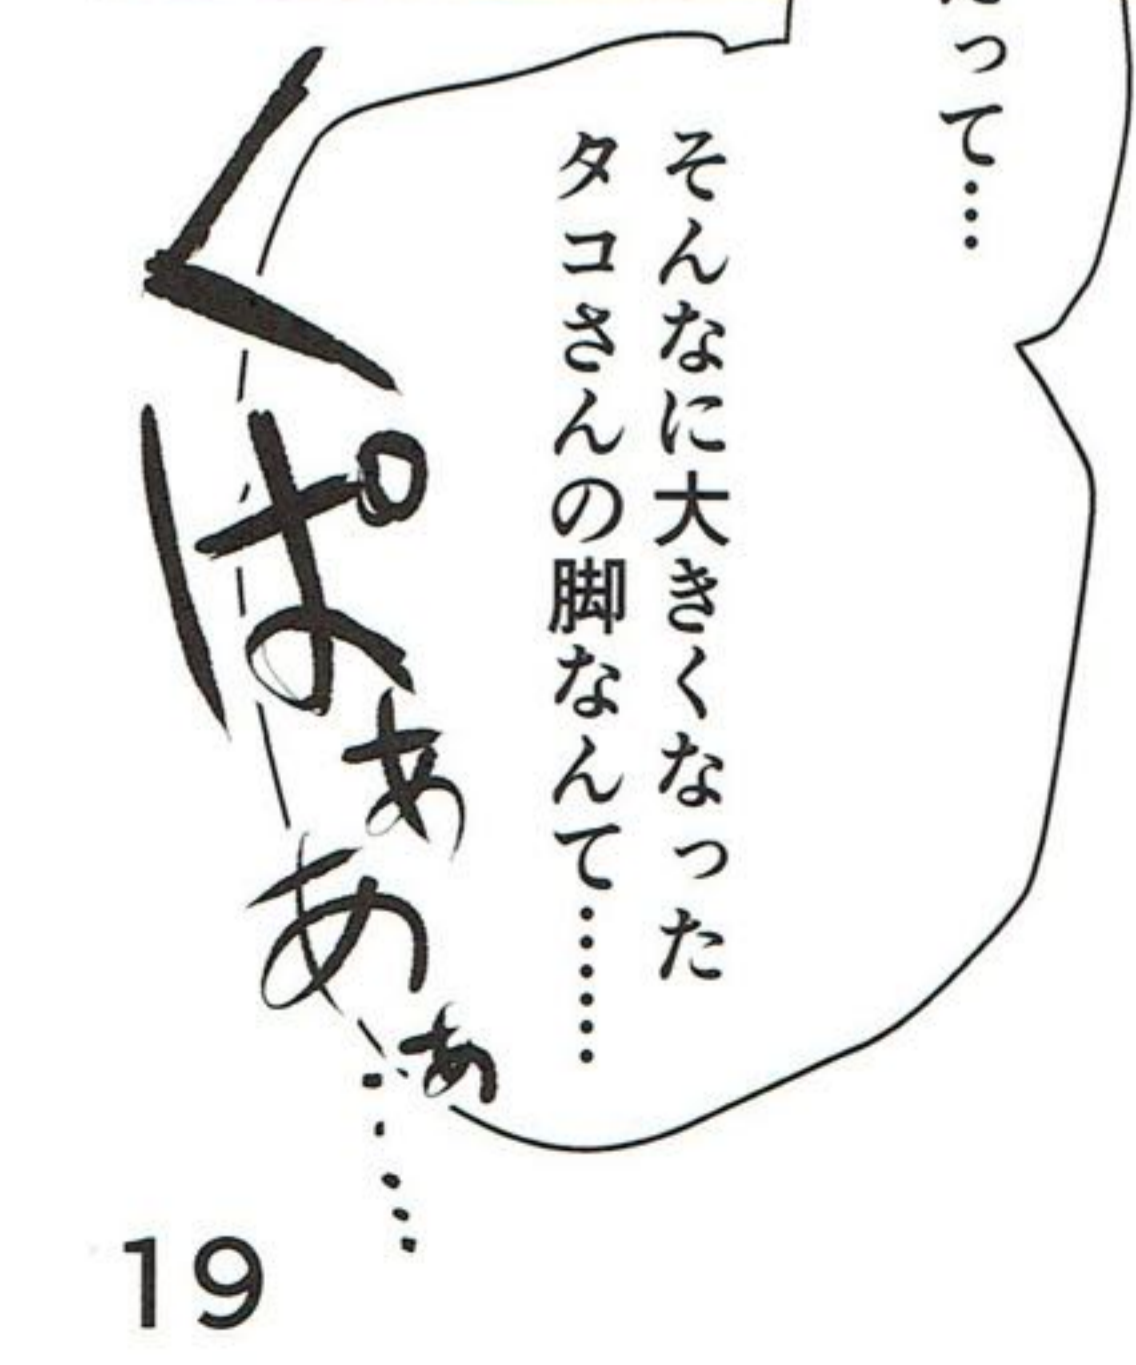 って…
そんなに大きくなった
タコさんの脚なんて……
くぱぁあぁ……
19